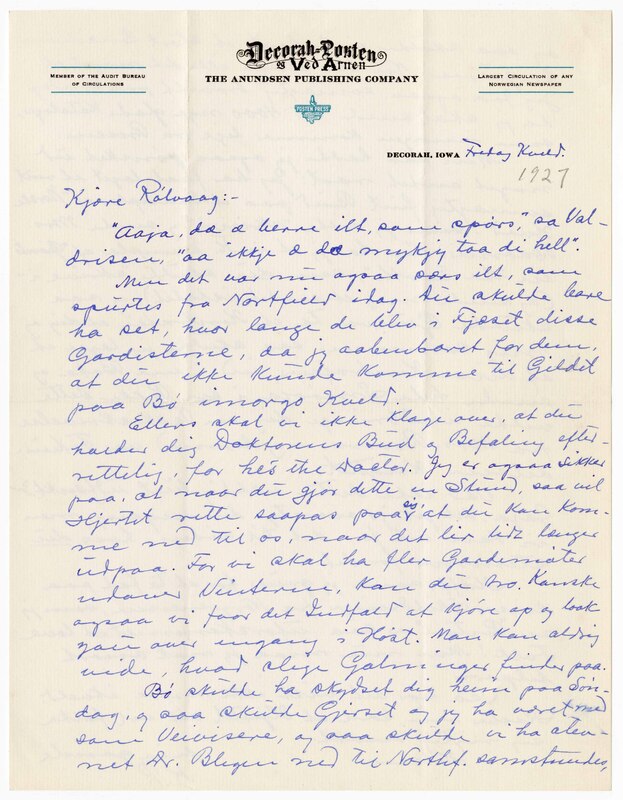 Decorah-Posten
Ved Arnen
THE ANUNDSEN PUBLISHING COMPANY
MEMBER OF THE AUDIT BUREAU
OF CIRCULATIONS
LARGEST CIRCULATION OF ANY
NORWEGIAN NEWSPAPER
POSTEN PRESS
DECORAH, IOWA Fredag Kveld.
1927
Kjære Rölvaag:-
"Aaja, da æ berre ilt, som spörs," sa Val-
drisen, "aa ikkje æ dæ mykjy taa di hell".
Men det var nu ogsaa særs ilt, som
spurtes fra Northfield idag. Du skulde bare
ha set, hvor lange de blev i Fjæset disse
Gardisterne, da jeg aabenbaret for dem,
at du ikke kunde komme til Gildet
paa Bö imorgo Kveld.
Ellers skal vi ikke klage over, at du
holder dig Doktorens Bud og Befaling efter-
rettelig, for he's the Doctor. Jeg er ogsaa sikker
paa, at naar du gjör dette en Stund, saa vil
Hjertet rette saapas paa sig, at du kan kom-
me ned til os, naar det lir litt længer
udpaa. For vi skal ha fler Gardemöter
udover Vinteren, kan du tro. Kanske
ogsaa vi faar det Indfald at kjöre op og look
you over engang i Höst. Man kan aldrig
vide, hvad slige Galninger finder paa.
Bö skulde ha skydset dig heim paa Sön-
dag, og saa skulde Gjerset og jeg ha været med
som Veivisere, og saa skulde vi ha stev-
net Dr. Blegen ned til Northf. samstundes,